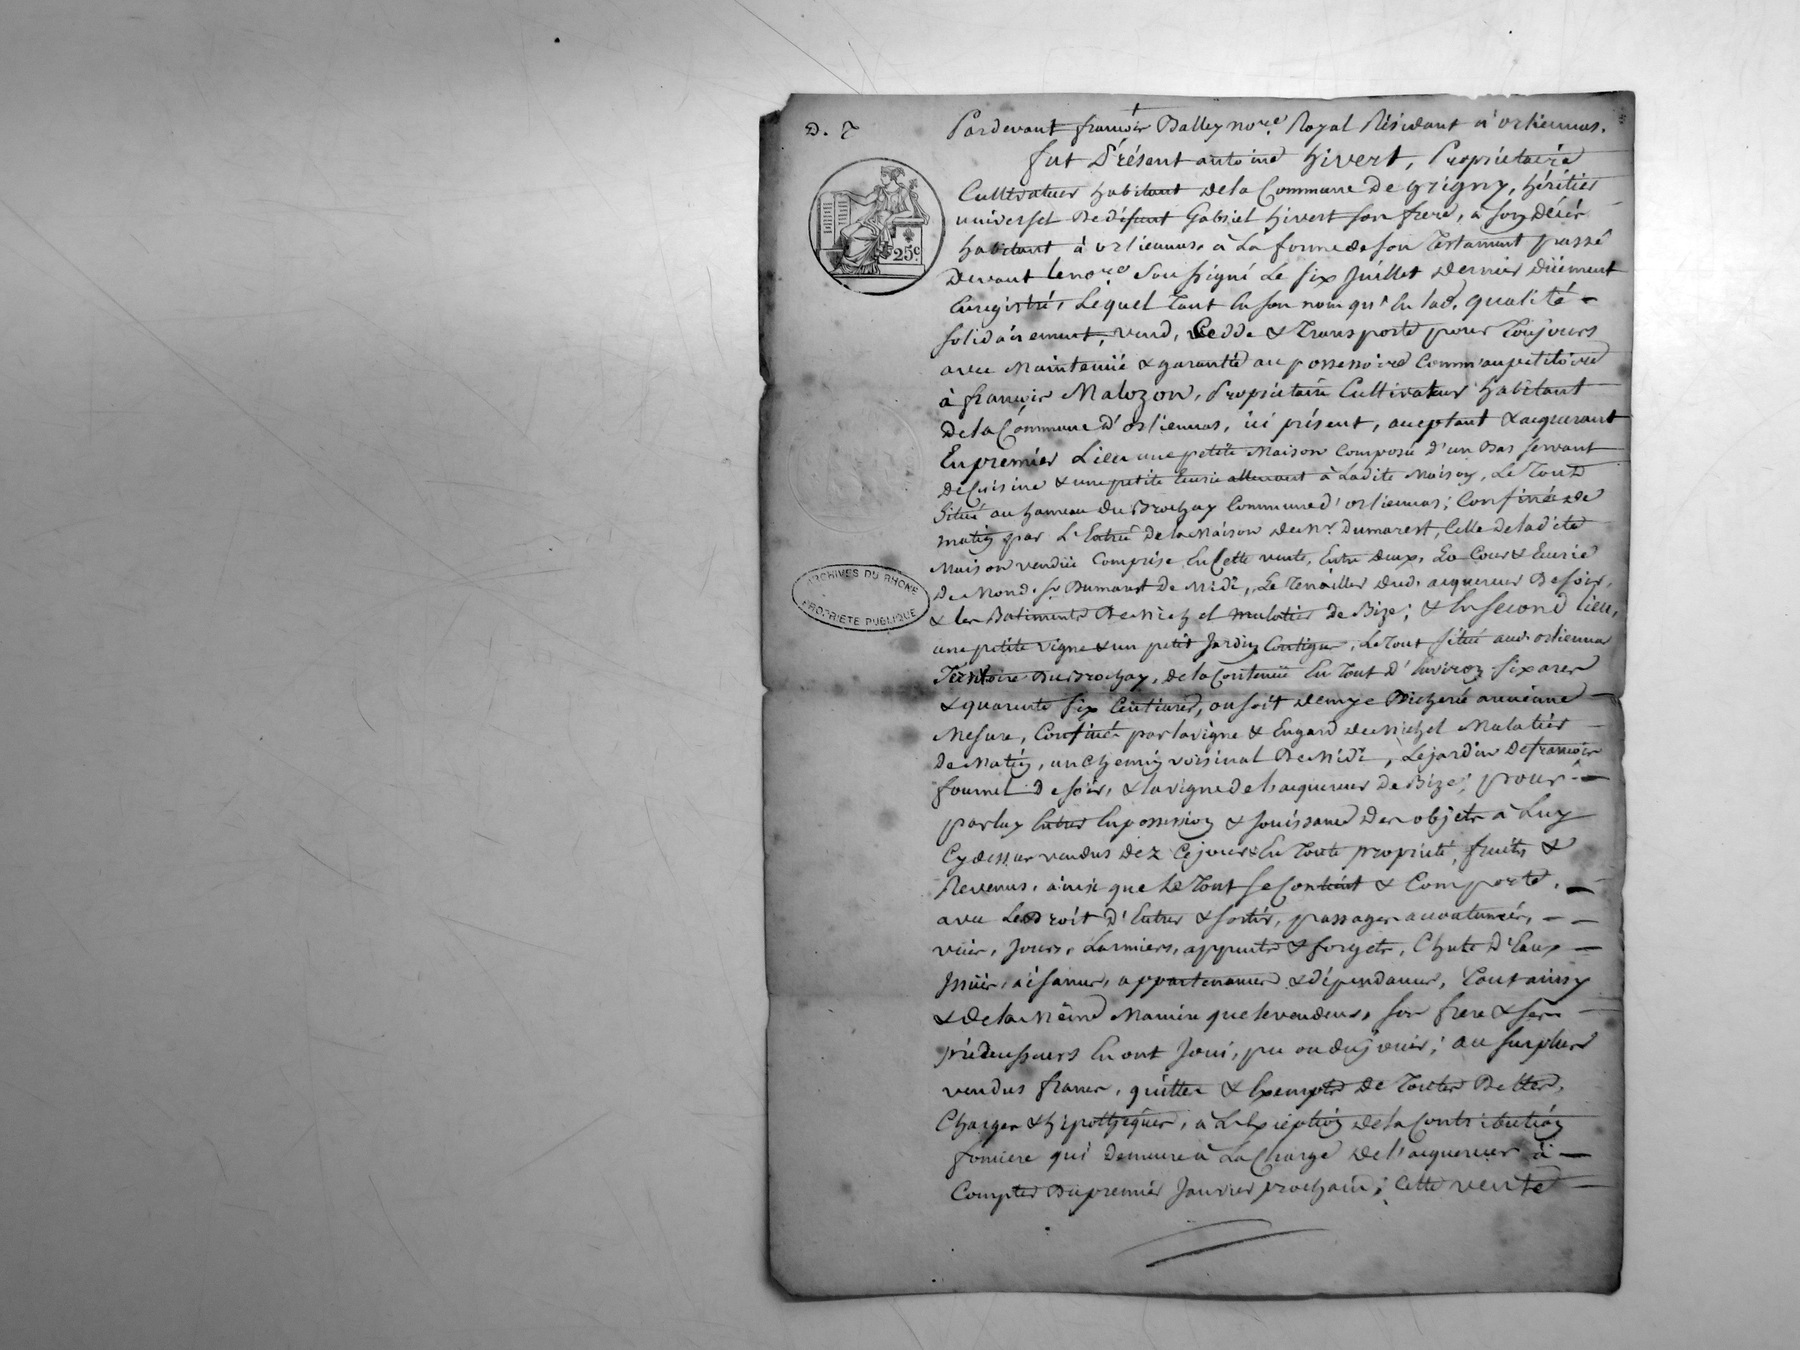 D. 7
Pardevant françois Balley no.re Royal Résidant à orliennas.
fut Présent antoine hivert, Propriétaire
Cultivateur habitant dela Commune de grigny, héritier
universel dedefunt Gabriel hivert son frere, a son décér
habitant à orliennas, à La forme de son Testament passé
25.c
Devant leno.re Soussigné Le six Juillet dernier düement
Enregistré, Lequel Tant En son nom qu'En lad. qualité
solidairement, vend, Cedde & Transporte pour Toujours
avec Maintenüe & garantie au possessoire Comm'aupetitoire
à françois Malozon, Propriétaire Cultivateur habitant
dela Commune d'orliennas, ici présent, aceptant & aquerant
En premier Lieu une petite Maison Composée d'un Bas servant
de Cuisine & une petite Ecurie attenant à Ladite Maison, Le Tout
Situé au hameau du Brochay Commune d'orliennas; Confinée de
matin par L'Entrée de la Maison du Sr. Dumarest, Celle deladite
Maison vendüe Comprise En Cette vente, Entre deux, La Cour & Ecurie
de Mond. Sr Dumarest de Midi, Le Tenailler dud. aquereur de soir,
& les Batiments de Michel Mulatier de Bize; & En second lieu,
une petite vigne & un petit Jardin Contigus, Le Tout situé aud. orliennas
Territoire du Brochay, de la Contenüe En Tout d'Environ six ares
& quarante six Centiares, ou soit demye Bicherée ancienne
Mesure, Confinés par la vigne & de Michel Mulatier
de Matin, un Chemin voisinal de Midi, Le jardin de françois
fournel de soir, & la vigne de l'aquereur de Bize; pour
par luy Entrer En possession & Jouissance des objets à Luy
Cydessus vendus dez Cejour & En Toute propriété, fruits &
Revenus, ainsi que Le Tout se Contient & Comporte,
avec Le droit d'Entrer & sortir, passages accoutumés,
vües, Jours, Larmiers, appuits & forgets, Chute d'Eaux
Issües, aisances, appartenances & dépendances, Tout ainsy
& de la Même Maniere que le vendeur, son frere & ses
prédecesseurs En ont Joui, pu ou dû jouir; au surplus
vendus francs, quittes & Exempts de Toutes Dettes,
Charges & hipothèques, à L'Exception de la Contribution
fonciere qui demeure à La Charge de l'aquereur à
Compter du premier Janvier prochain; Cette vente
ARCHIVES DU RHONE
PROPRIETE PUBLIQUE